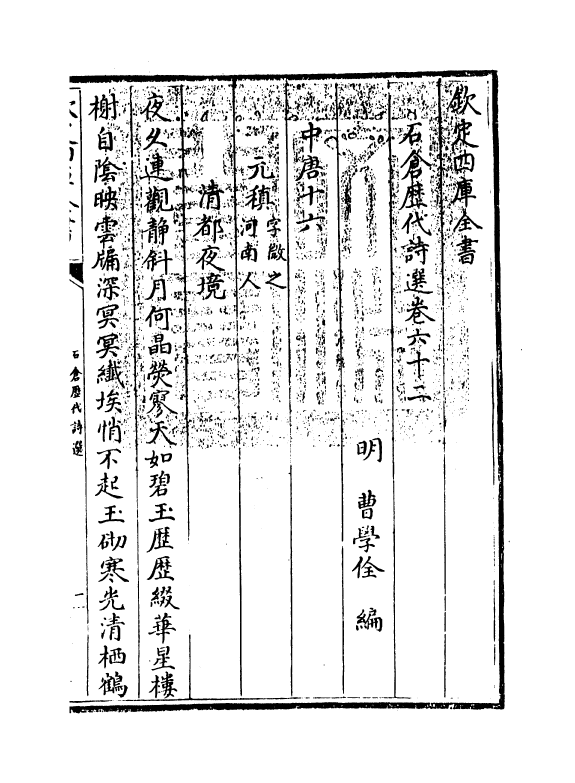 欽定四庫全書
石倉歷代詩選卷六十二
明 曹學佺 編
中唐十六
元稹 字㣲之 河南人
清都夜境
夜久連觀静斜月何晶熒寥天如碧玉歴歴綴華星樓
榭自陰映雲牖深冥冥纎埃悄不起玉砌寒光清栖鶴
石倉歴代詩選